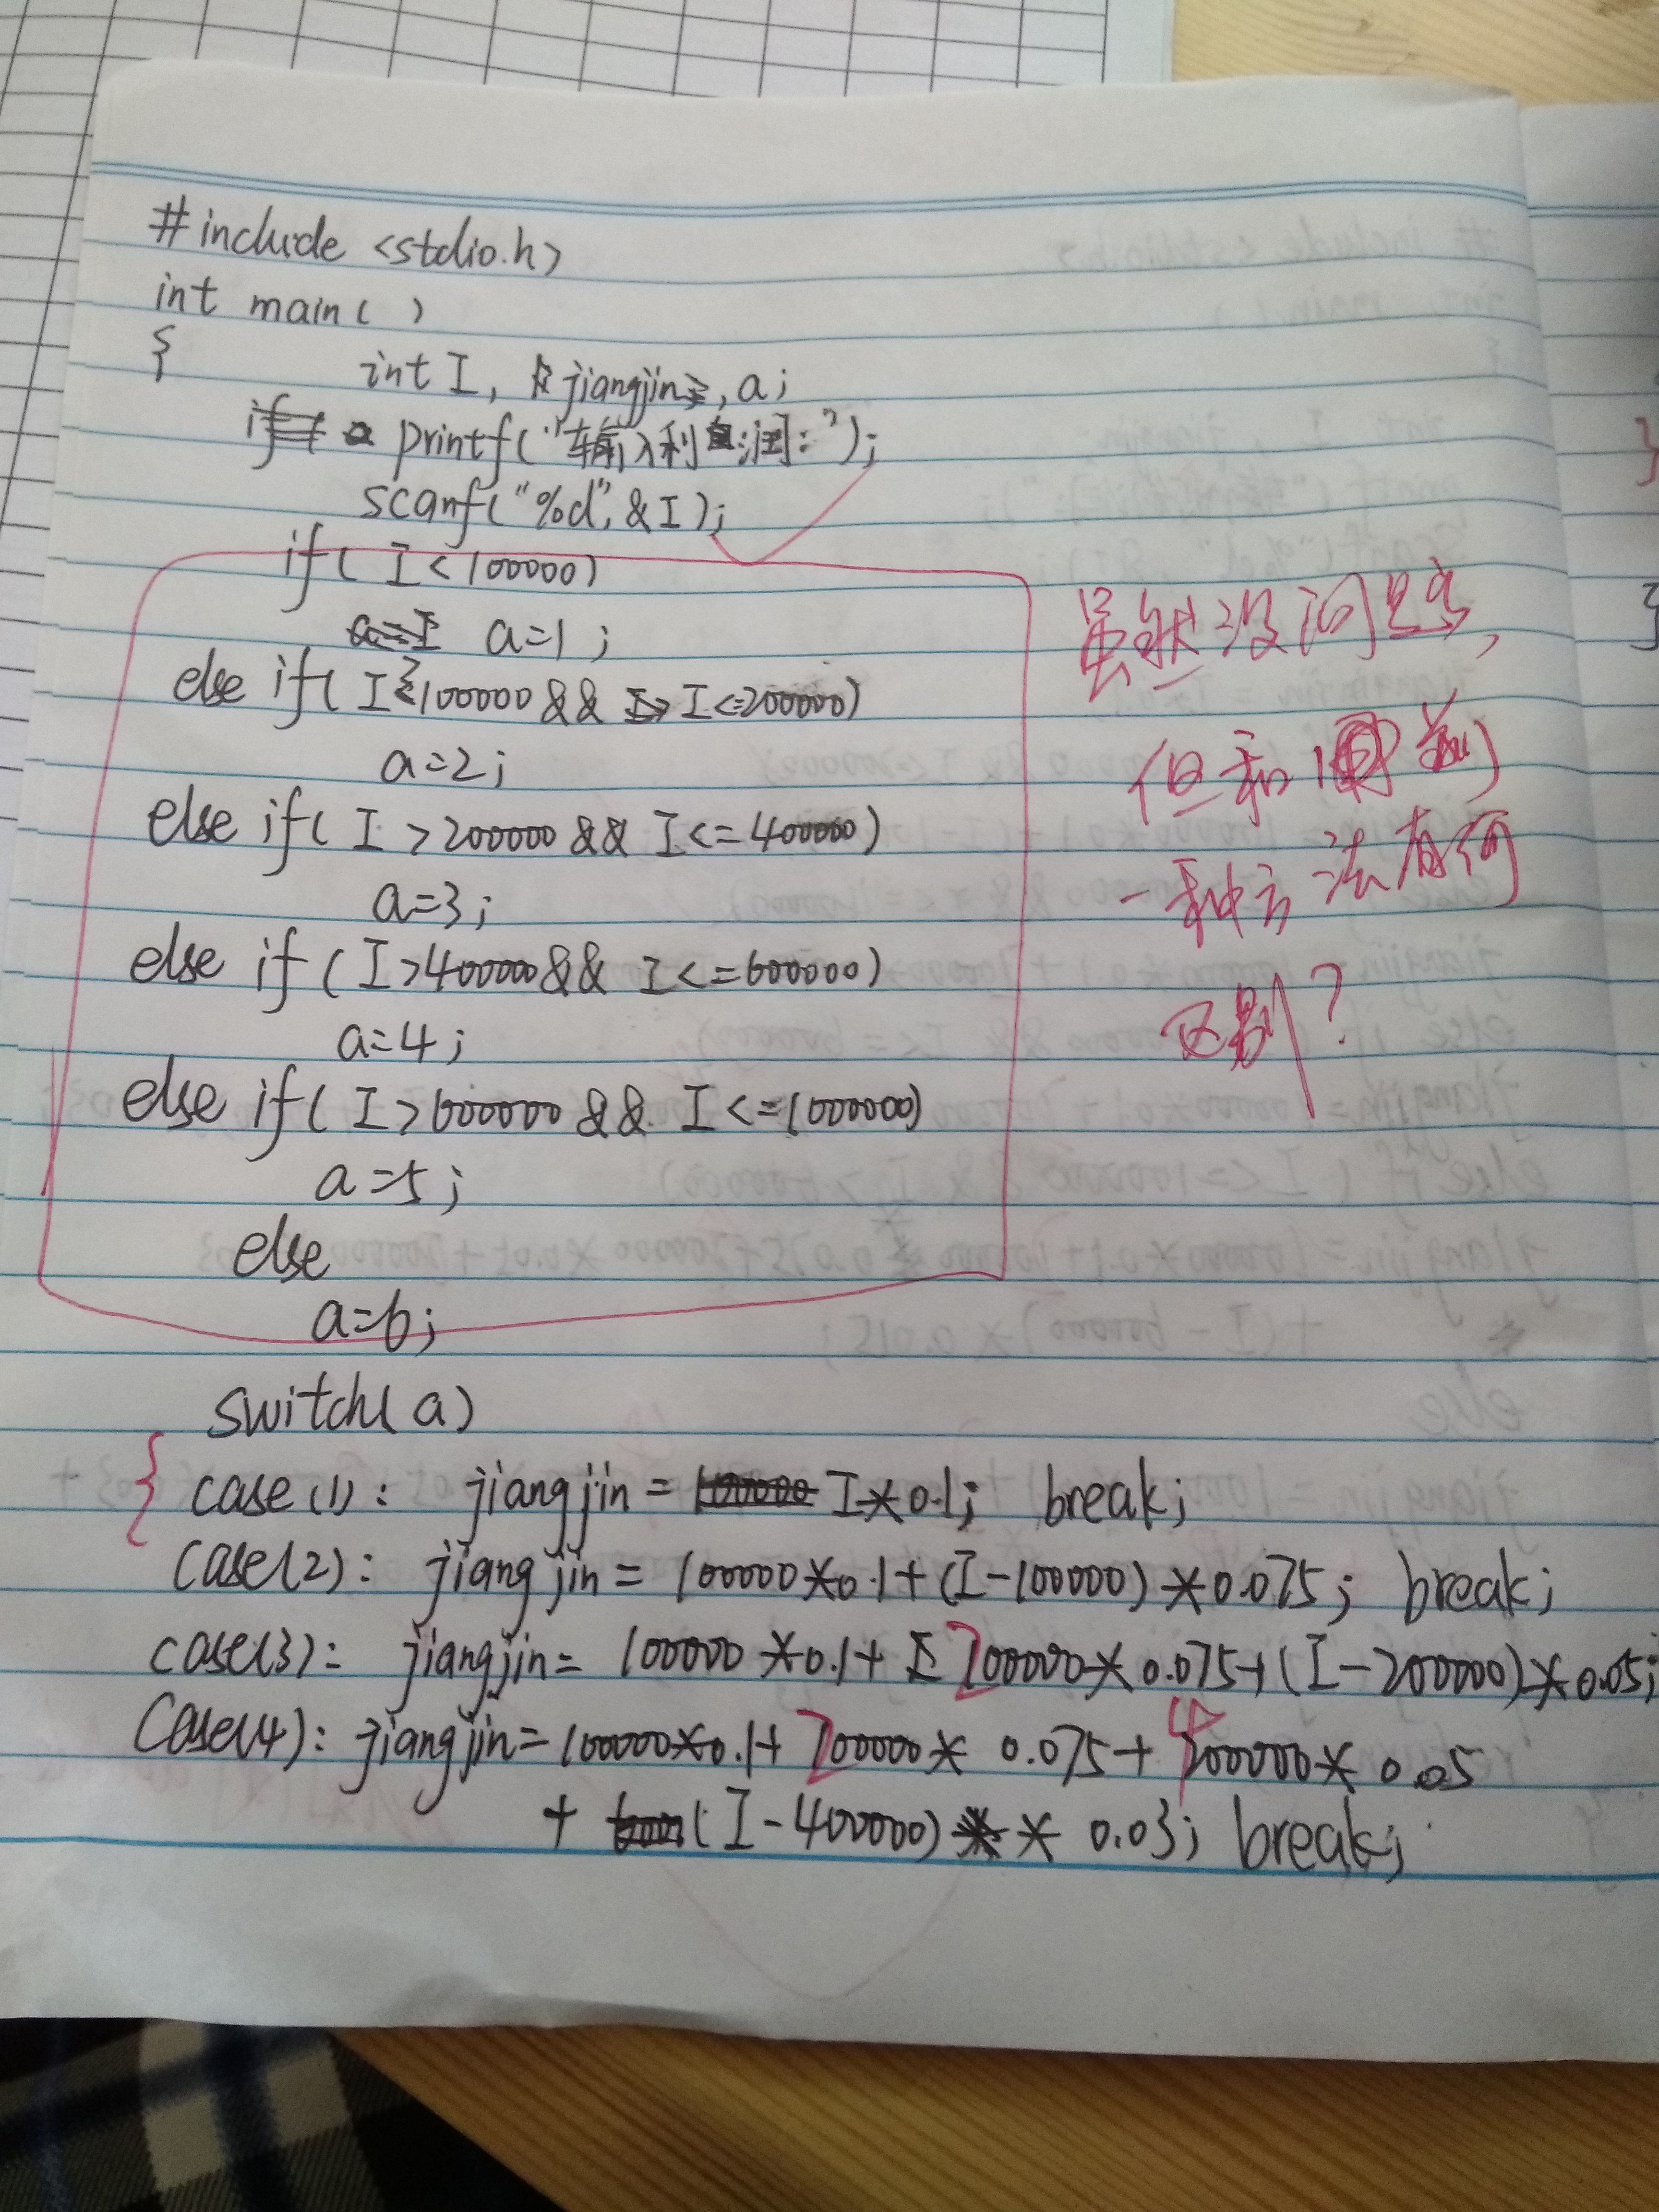 #include <stdio.h>
int main( )
{
int I, jiangjin, a;
printf("输入利润:");
scanf("%d",&I);
if( I<100000)
a=1;
else if( I≥100000 && I<=200000)
a=2;
else if( I >200000 && I<=400000)
a=3;
else if (I>400000&& I<=600000)
a=4;
else if( I>600000 && I<=1000000)
a=5;
else
a=6;
虽然没问题,
但和前
一种方法有何
区别?
switch(a)
{ case(1): jiangjin= I*0.1; break;
case(2): jiangjin= 100000*0.1+(I-100000)*0.075; break;
case(3): jiangjin= 100000*0.1+ 200000*0.075+(I-200000)*0.05;
case(4): jiangjin=100000*0.1+ 200000* 0.075+ 400000* 0.05
+ (I-400000) * 0.03; break;
}
}